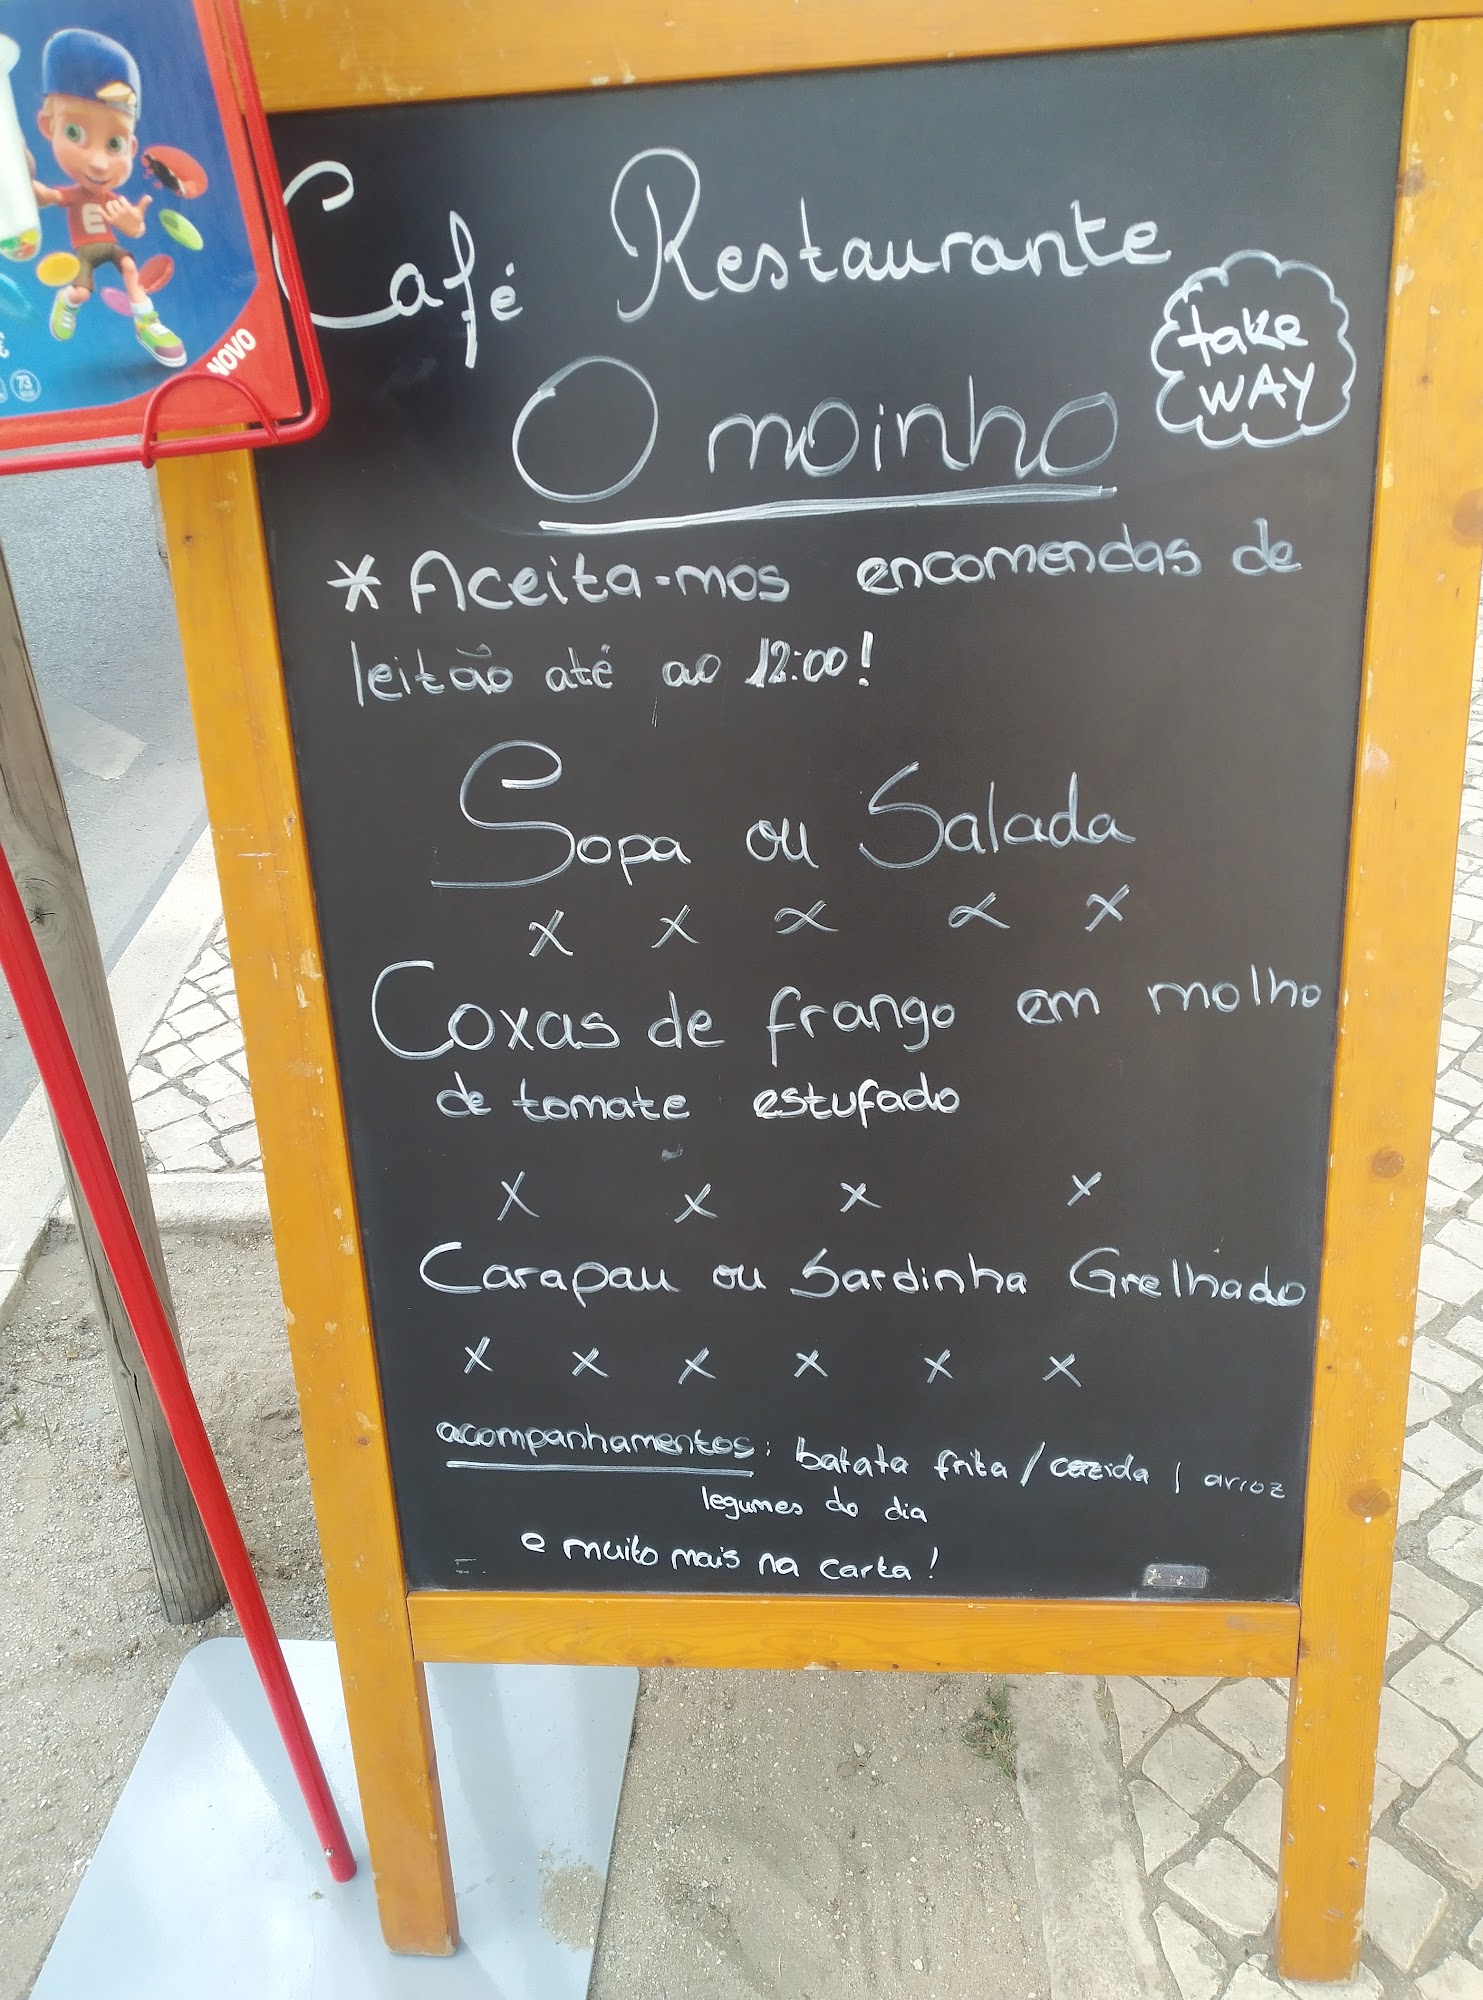 E
NOVO
73
Café Restaurante
take
WAY
O moinho
* Aceita-mos encomendas de
leitão até ao 12:00!
Sopa ou Salada
x x x x x
Coxas de frango em molho
de tomate estufado
x x x x
Carapau ou Sardinha Grelhado
x x x x x x
acompanhamentos: batata frita / cozida / arroz
legumes do dia
e muito mais na carta!